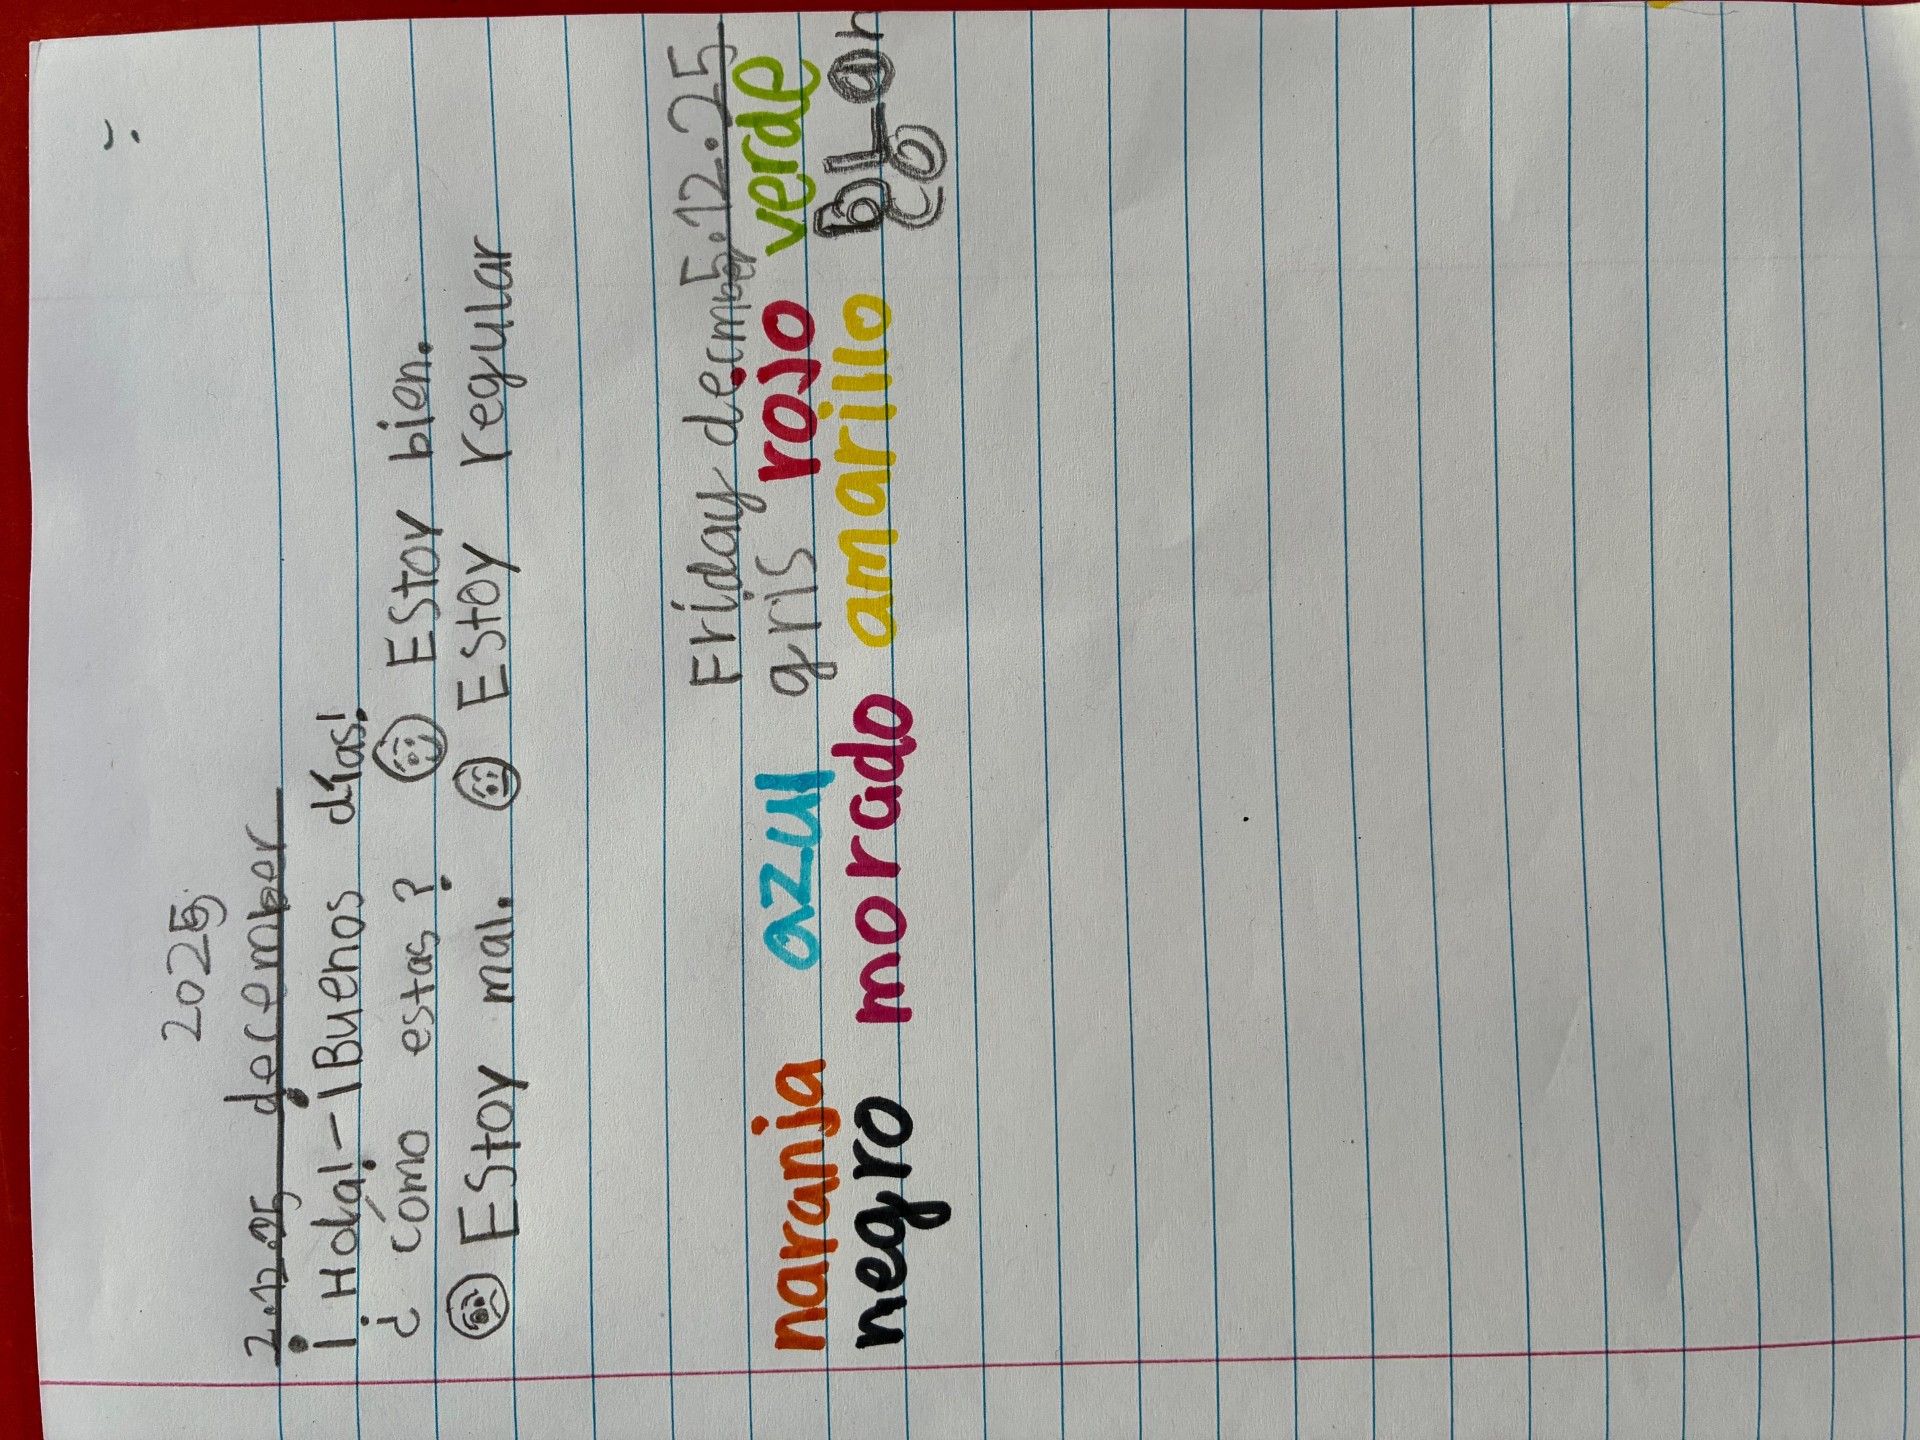 2025
2.12.25 december
¡Holá!-¡Buenos días!
¿cómo estas? Estoy bien.
Estoy mal. Estoy regular
Friday decmber 5.12.25
naranja azul gris rojo verde
negro morado amarillo bLan
co